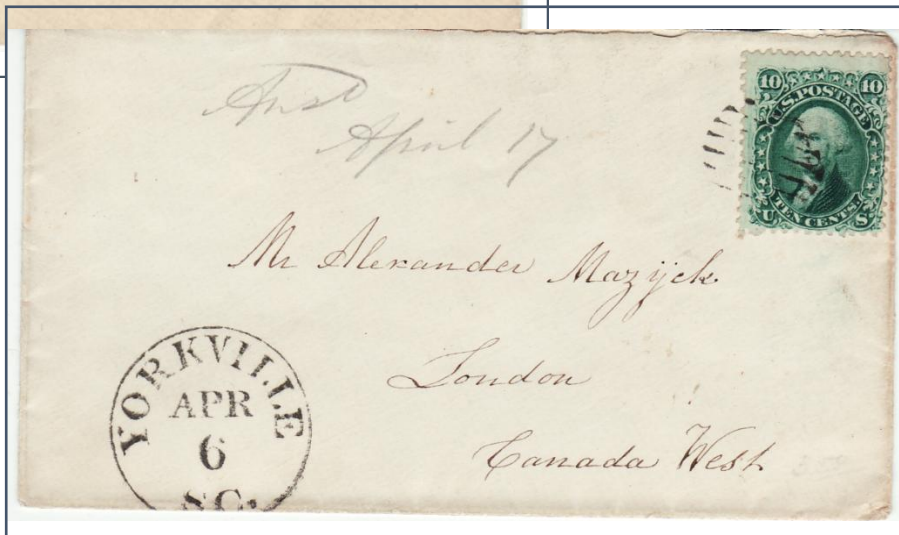 Ansd
April 17
10 10
U.S. POSTAGE
TEN CENTS
U S
Mr Alexander Mazijck
London
Canada West
YORKVILLE
APR
6
S.C.